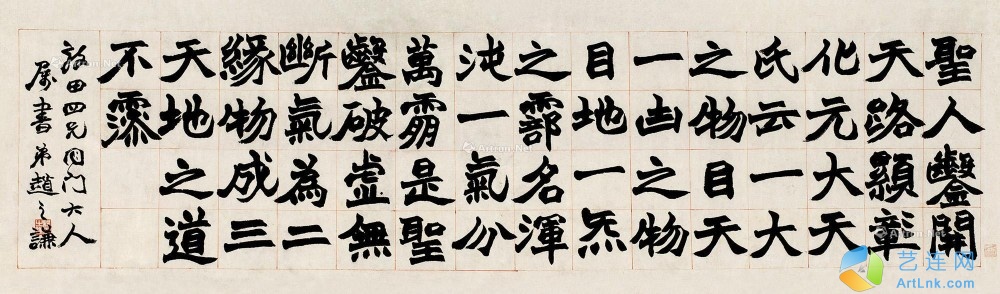 聖人鑿開
天路顯彰
化元大天
氏云一大
之物目天
一凷之物
目地一炁
之名渾
沌一氣分
萬是聖
鑿破虛無
斷氣為二
緣物成三
天地之道
不
田四兄同門大人
属書弟趙之謙
艺连网
ArtLnk.com